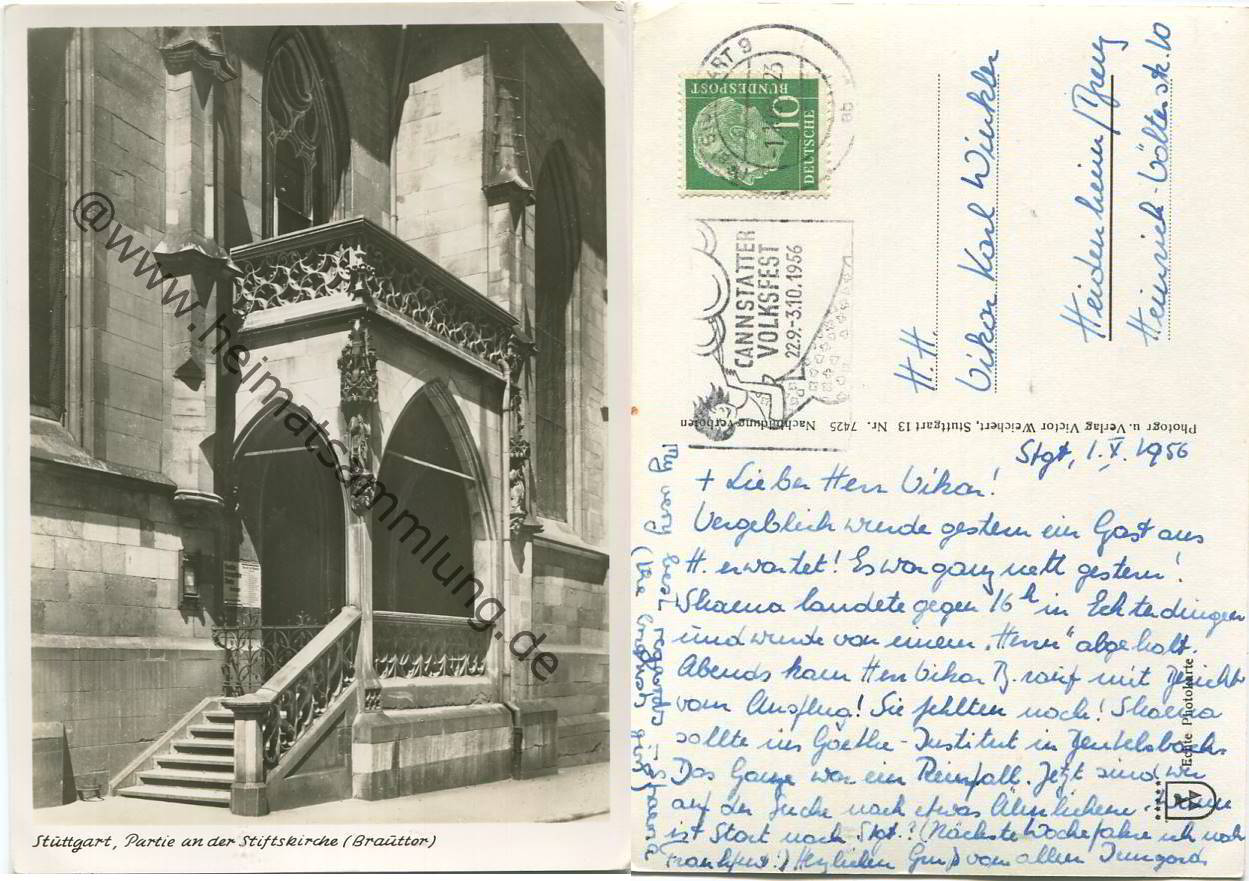 Stuttgart, Partie an der Stiftskirche (Brauttor)
@www.heimatsammlung.de
10
DEUTSCHE
BUNDESPOST
CANNSTATTER
VOLKSFEST
22.9.-3.10.1956
H.H.
Vikar Karl Winkler
Heidenheim/Brenz
Heinrich-Völterstr. 10
Photogr. u. Verlag Victor Weichert, Stuttgart 13 Nr. 7425 Nachbildung verboten
Echte Photokarte
Stgt, 1.X.1956
+ Lieber Herr Vikar!
Vergeblich wurde gestern ein Gast aus
H. erwartet! Es war ganz nett gestern!
Shaena landete gegen 16h in Echterdingen
und wurde von einem „Herrn" abgeholt.
Abends kam Herr Vikar B. rauf mit Bericht
vom Ausflug! Sie fehlten noch! Shaena
sollte ins Goethe-Institut in Beutelsbach.
Das Ganze war ein Reinfall. Jetzt sind wir
auf der Suche nach etwas Ähnlichem. Wann
ist Start nach Stgt.? (Nächste Woche fahre ich nach
Frankfurt!) Herzlichen Gruß von allen Irmgard
My very best regards Shaena